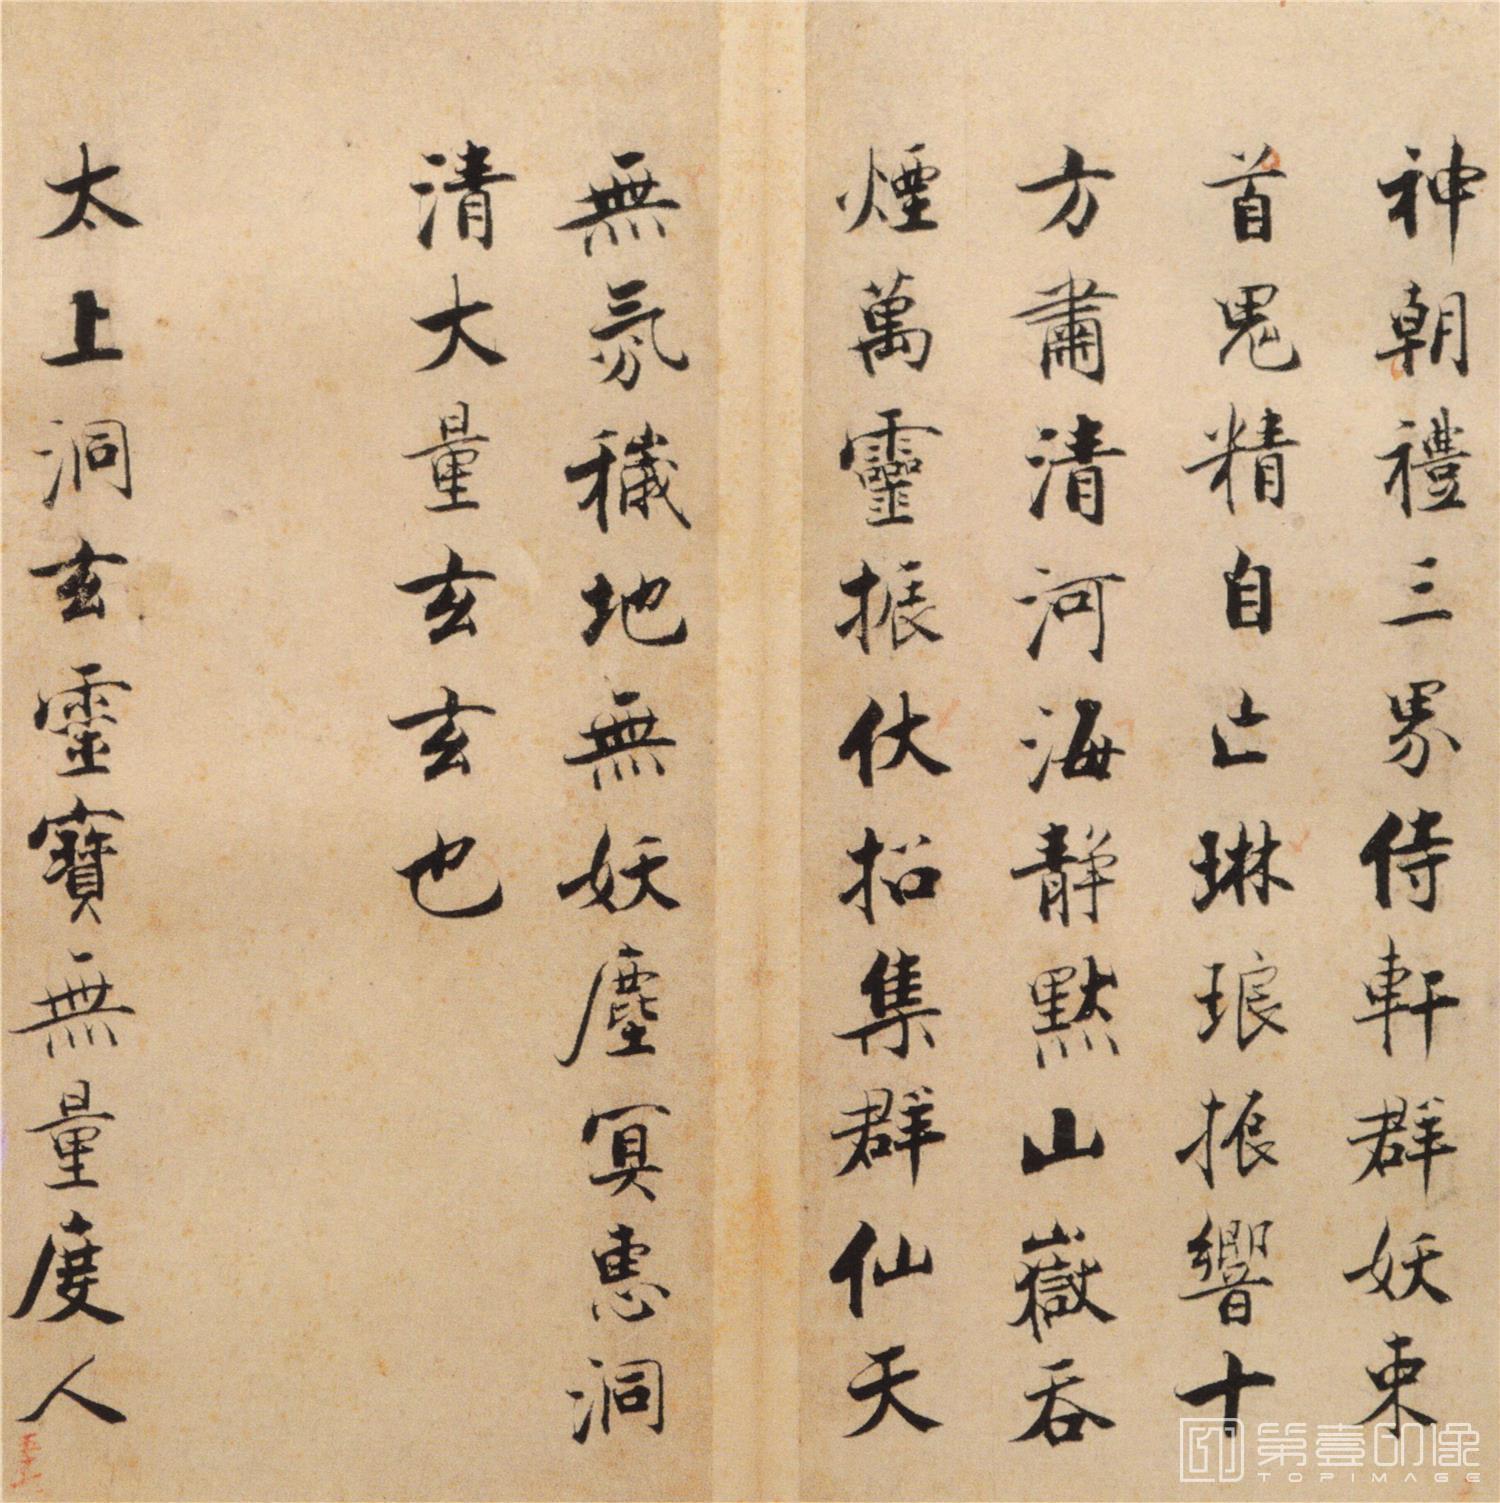 神朝禮三界侍軒群妖束
首鬼精自亡琳琅振響十
方肅清河海靜默山嶽吞
煙萬靈振伏招集群仙天
無氛穢地無妖塵冥惠洞
清大量玄玄也
太上洞玄靈寶無量度人
第壹印像
TOPIMAGE